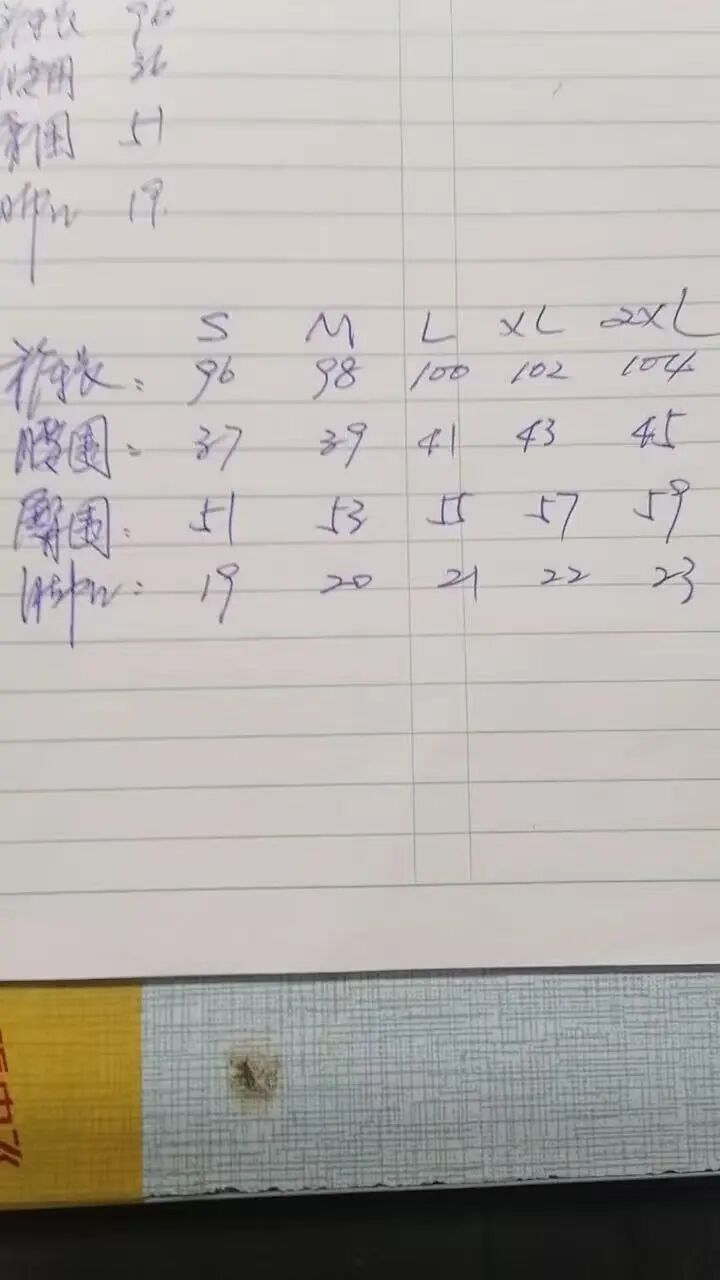 裤长 96
腰围 36
臀围 51
脚口 19
S M L XL 2XL
裤长: 96 98 100 102 104
腰围: 37 39 41 43 45
臀围: 51 53 55 57 59
脚口: 19 20 21 22 23